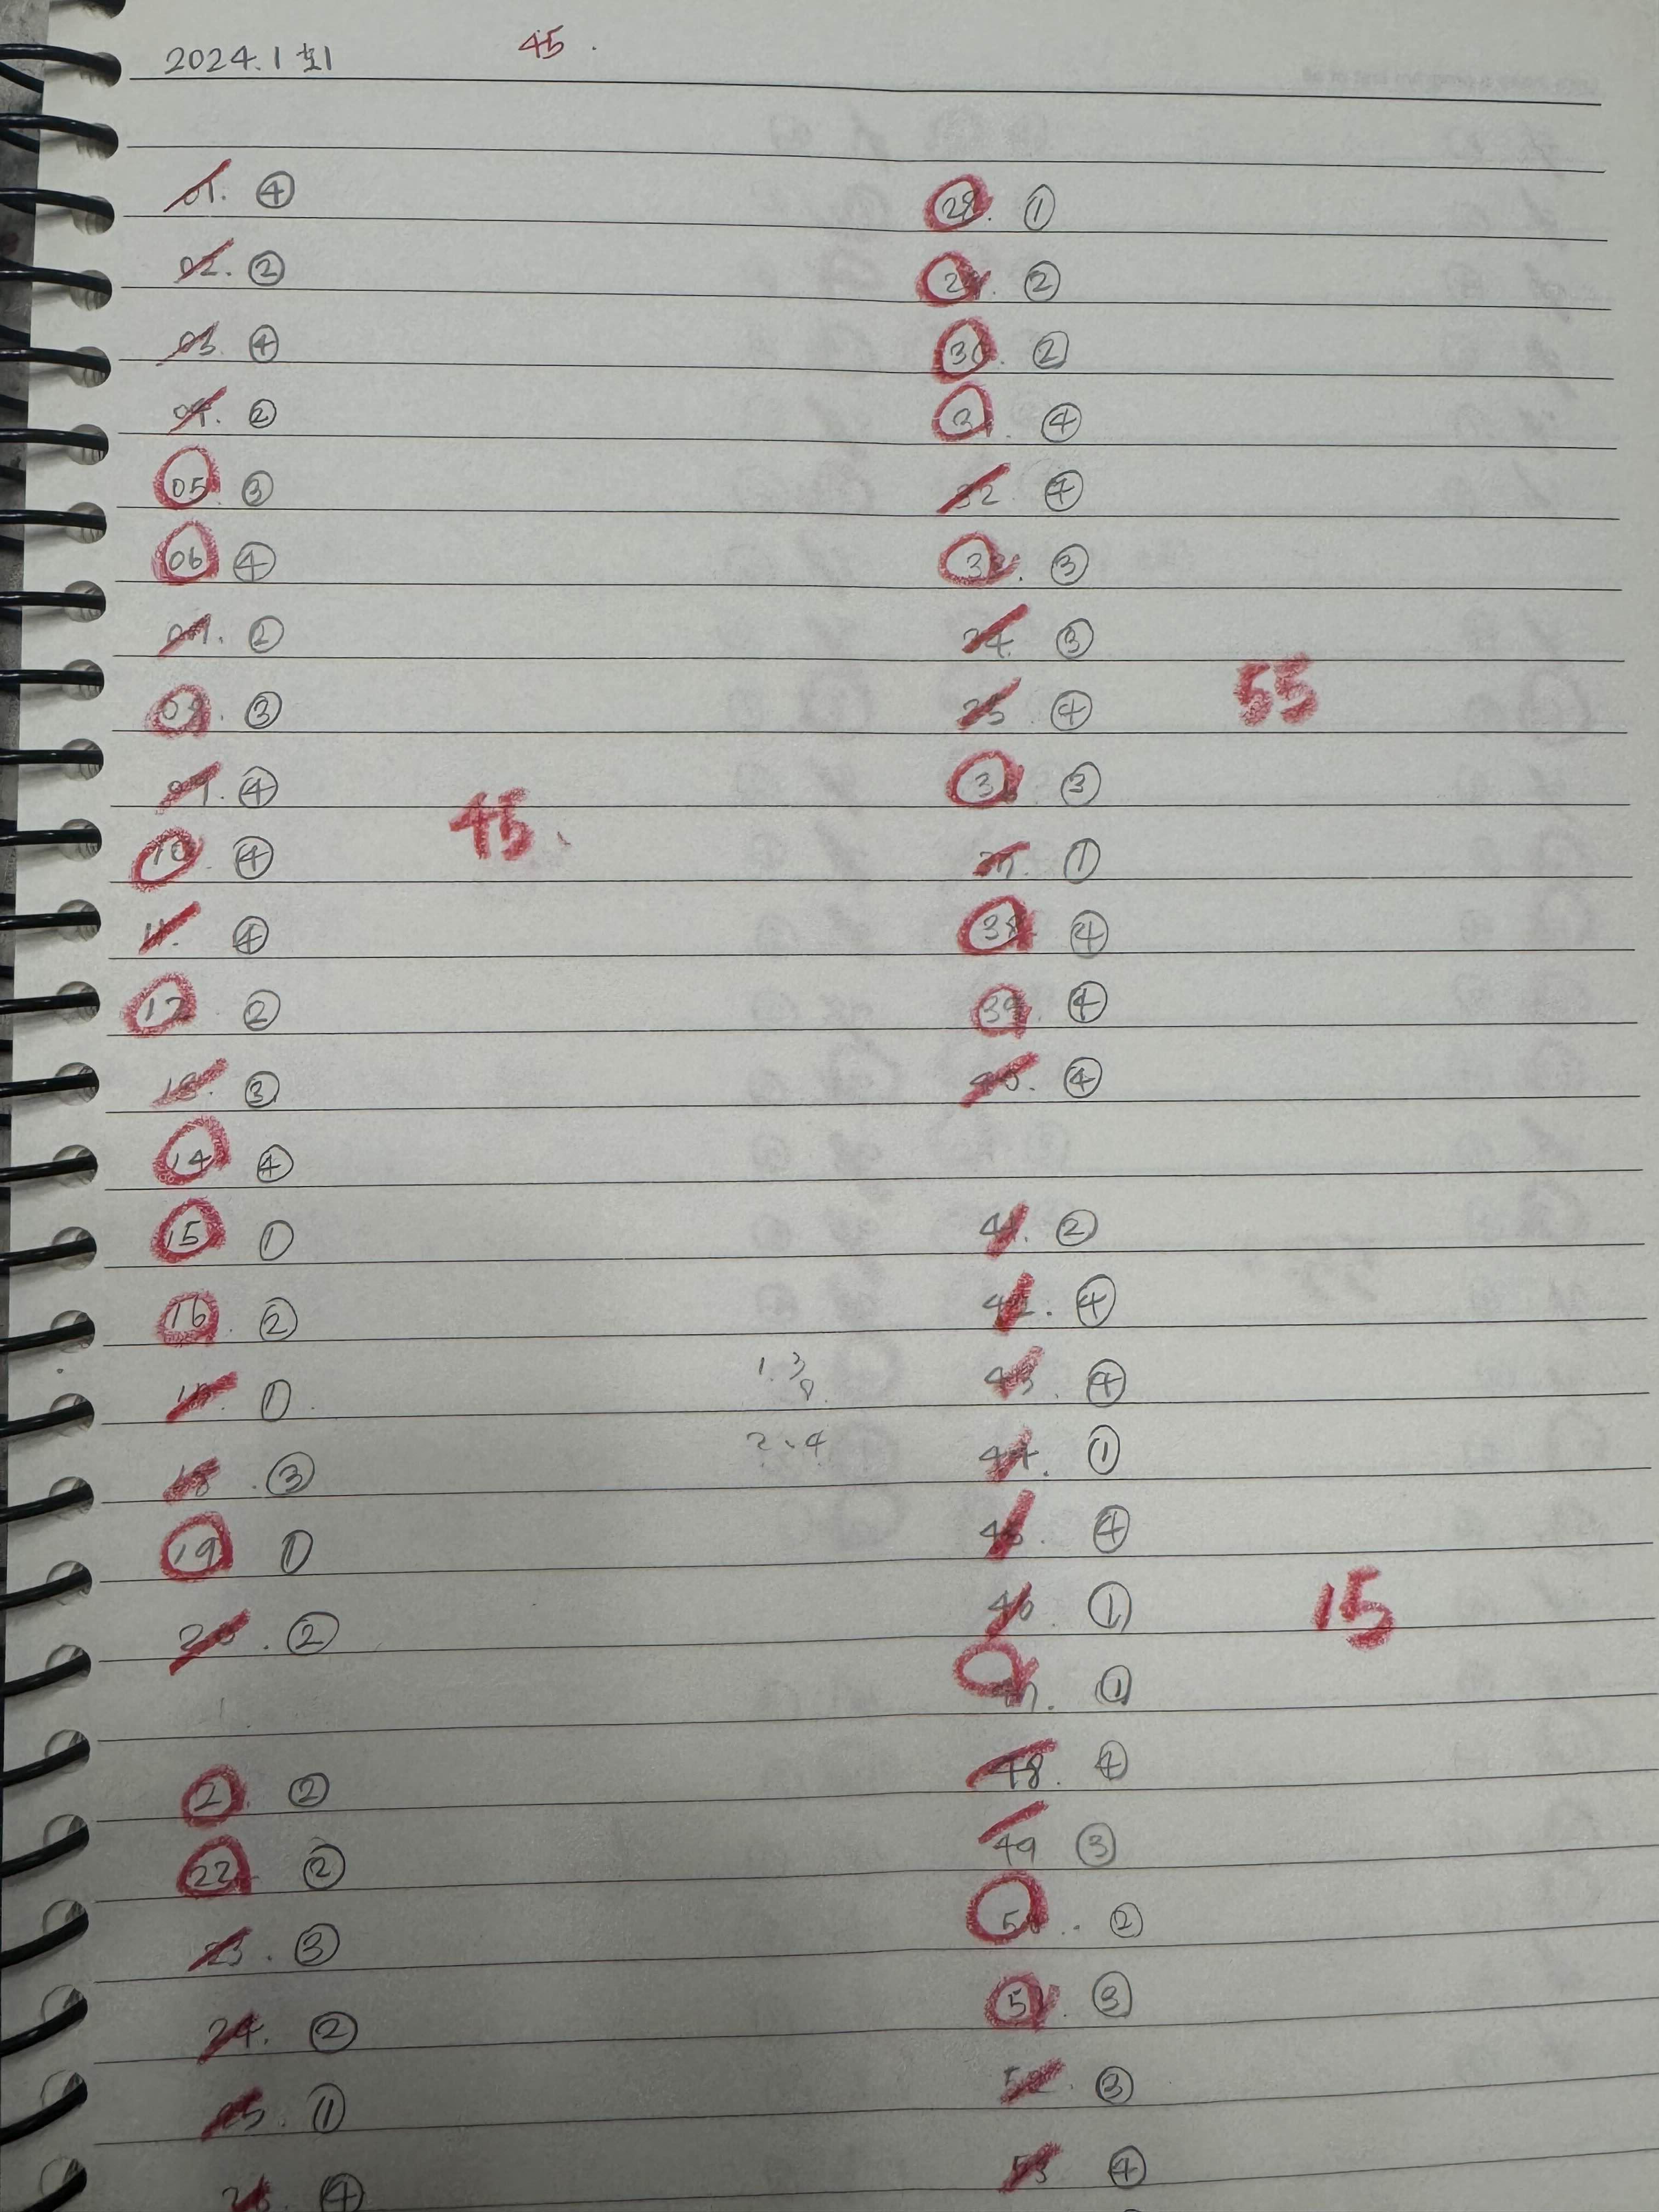 2024. 1 회
45.
01. ④
02. ②
03. ④
04. ②
05. ③
06 ④
07. ②
08. ③
09. ④
10. ④
11. ④
12. ②
13. ③
14 ④
15 ①
16. ②
17. ①.
18. ③
19 ①
20. ②
45.
21. ②
22. ②
23. ③
24. ②
25. ①
26. ④
28. ①
29. ②
30. ②
31. ④
32. ④
33. ③
34. ③
35. ④
36. ③
37. ①
38. ④
39. ④
40. ④
55
41. ②
42. ④
43. ④
44. ①
45. ④
46. ①
47. ①
48. ④
49 ③
50. ②
51. ③
52. ③
53. ④
15
1. 3
8.
2. 4